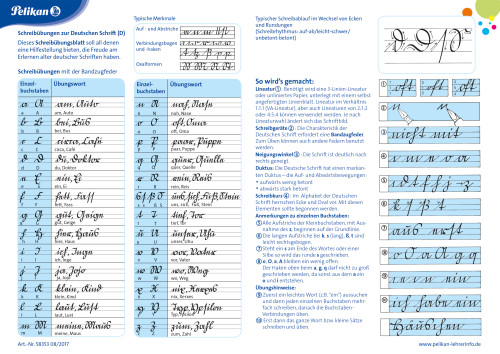 Pelikan
Schreibübungen zur Deutschen Schrift (D)
Dieses Schreibübungsblatt soll all denen
eine Hilfestellung bieten, die Freude am
Erlernen alter deutscher Schriften haben.
Schreibübungen mit der Bandzugfeder
Einzel-
buchstaben
Übungswort
a A am, Auto
b B bei, Bus
c C circa, Café
d D du, Doktor
e E ein, Ei
f F fett, Fass
g G gut, Geige
h H hier, Haus
i I ich, Inge
j J ja, Jojo
k K klein, Kind
l L laut, Luft
m M meine, Maus
Art.-Nr. 58353 08/2017
Typische Merkmale
Auf- und Abstriche
Verbindungsbogen
und -haken
Ovalformen
Einzel-
buchstaben
Übungswort
n N nah, Nase
o O oft, Oma
p P paar, Puppe
q Q quer, Quelle
r R rein, Reis
t T
u U unser, Uhu
v V vor, Vater
w W wo, Weg
x X
y Y
z Z zum, Zahl
Typischer Schreibablauf im Wechsel von Ecken
und Rundungen
(Schreibrhythmus: auf-ab/leicht-schwer/
unbetont-betont)
So wird's gemacht:
Lineatur 1: Benötigt wird eine 3-Linien-Lineatur
oder unliniertes Papier, unterlegt mit einem selbst
angefertigten Linienblatt. Lineatur im Verhältnis
1:1:1 (VA-Lineatur), aber auch Lineaturen von 2:1:2
oder 4:5:4 können verwendet werden. Je nach
Lineaturwahl ändert sich das Schriftbild.
Schreibgeräte 2: Die Charakteristik der
Deutschen Schrift erfordert eine Bandzugfeder.
Zum Üben können auch andere Federn benutzt
werden.
Neigungswinkel 3: Die Schrift ist deutlich nach
rechts geneigt.
Duktus: Die Deutsche Schrift hat einen markan-
ten Duktus – die Auf- und Abstrichbewegungen:
* aufwärts wenig betont
* abwärts stark betont
Schreibkurs 4: Im Alphabet der Deutschen
Schrift herrschen Ecke und Oval vor. Mit diesen
Elementen sollte begonnen werden.
Anmerkungen zu einzelnen Buchstaben:
5 Alle Aufstriche der Kleinbuchstaben, mit Aus-
nahme des z, beginnen auf der Grundlinie.
6 Die langen Aufstriche bei k, s (lang), ß, t sind
leicht rechtsgebogen.
7 Steht ein s am Ende des Wortes oder einer
Silbe so wird das runde s geschrieben.
8 e, O, a, A bleiben ein wenig offen.
9 Der Haken oben bei a, g, q darf nicht zu groß
geschrieben werden, da sonst aus dem a ein
o und n entstehen.
Übungshinweise:
Zuerst ein leichtes Wort (z.B. "ein") aussuchen
und dann jeden einzelnen Buchstaben mehr-
fach schreiben, danach die Buchstaben-
Verbindungen üben.
Erst dann das ganze Wort bzw. kleine Sätze
schreiben und üben.
oft oft
nicht mit
k ſ ß t
aus
o O a A g q
ein
ich habe ein
Häuschen
www.pelikan-lehrerinfo.de